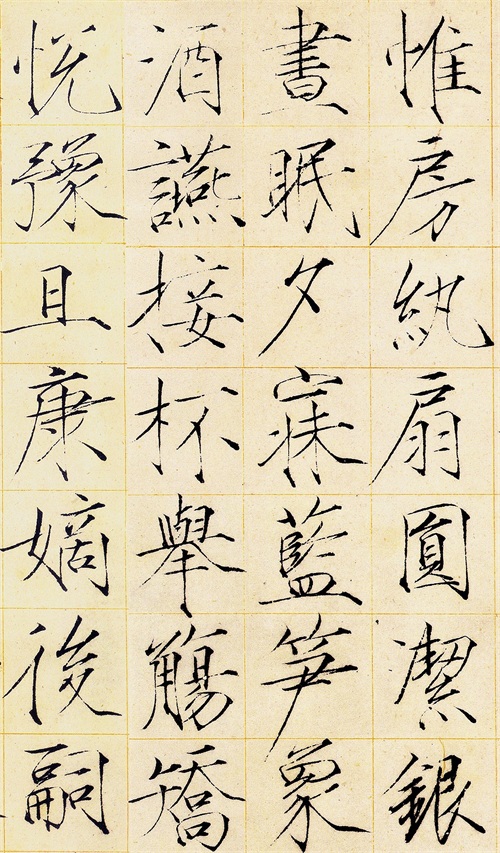 帷房紈扇圓潔銀
晝眠夕寐藍笋象
酒讌接杯舉觴矯
悅豫且康嫡後嗣